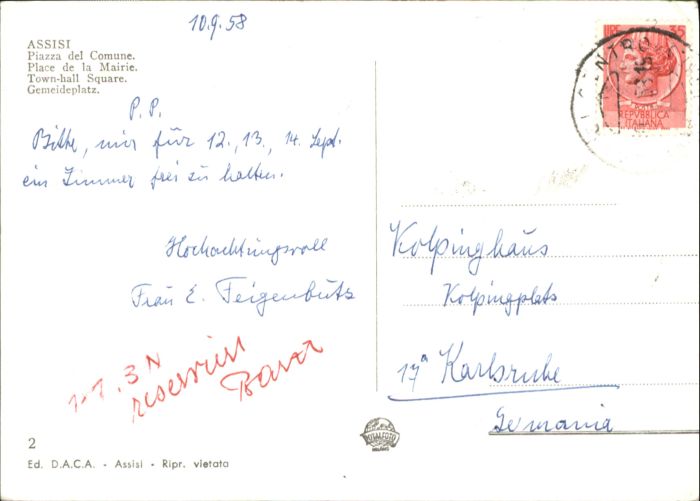 10.9.58
ASSISI
Piazza del Comune.
Place de la Mairie.
Town-hall Square.
Gemeideplatz.
P. P.
Bitte, mir für 12., 13., 14. Sept.
ein Zimmer frei zu halten.
Hochachtungsvoll
Frau E. Feigenbutz
1-1. 3 N
reserviert
2
Ed. D.A.C.A. - Assisi - Ripr. vietata
LIRE 35
POSTE
REPVBBLICA
ITALIANA
CENTRO
Kolpinghaus
Kolpingplatz
17a Karlsruhe
Germania
ITALFOTO
MILANO